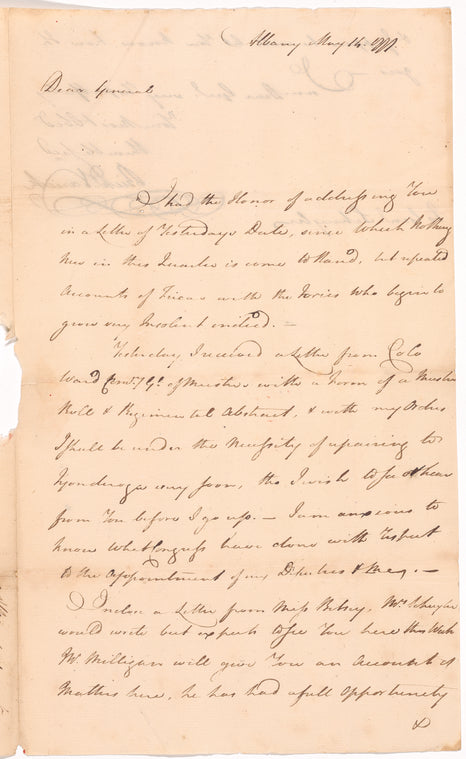 Albany May 14th 1777
Dear General
I had the Honor of addressing You
in a Letter of Yesterdays Date, since which Nothing
New in this Quarter is come to Hand, but repeated
Accounts of Fracas with the Tories who begin to
grow very Insolent indeed. —
Yesterday I received a Letter from Colo
Ward Comy Gl. of Musters with a Form of a Muster
Roll & Regimental Abstract, & with my Orders
I shall be under the Necessity of repairing to
Tyonderoga very soon, tho I wish to see & hear
from You before I go up. — I am anxious to
know what Congress have done with respect
to the Appointment of my Deputies & Me. —
I inclose a Letter from Miss Betsey, Mrs. Schuyler
would write but expects to see You here this Week
Mr. Milligan will give You an Account of
Matters here, he has had a full Opportunity
&